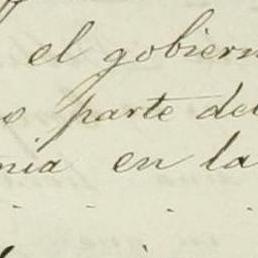 el gobiern
o parte del
nia en la